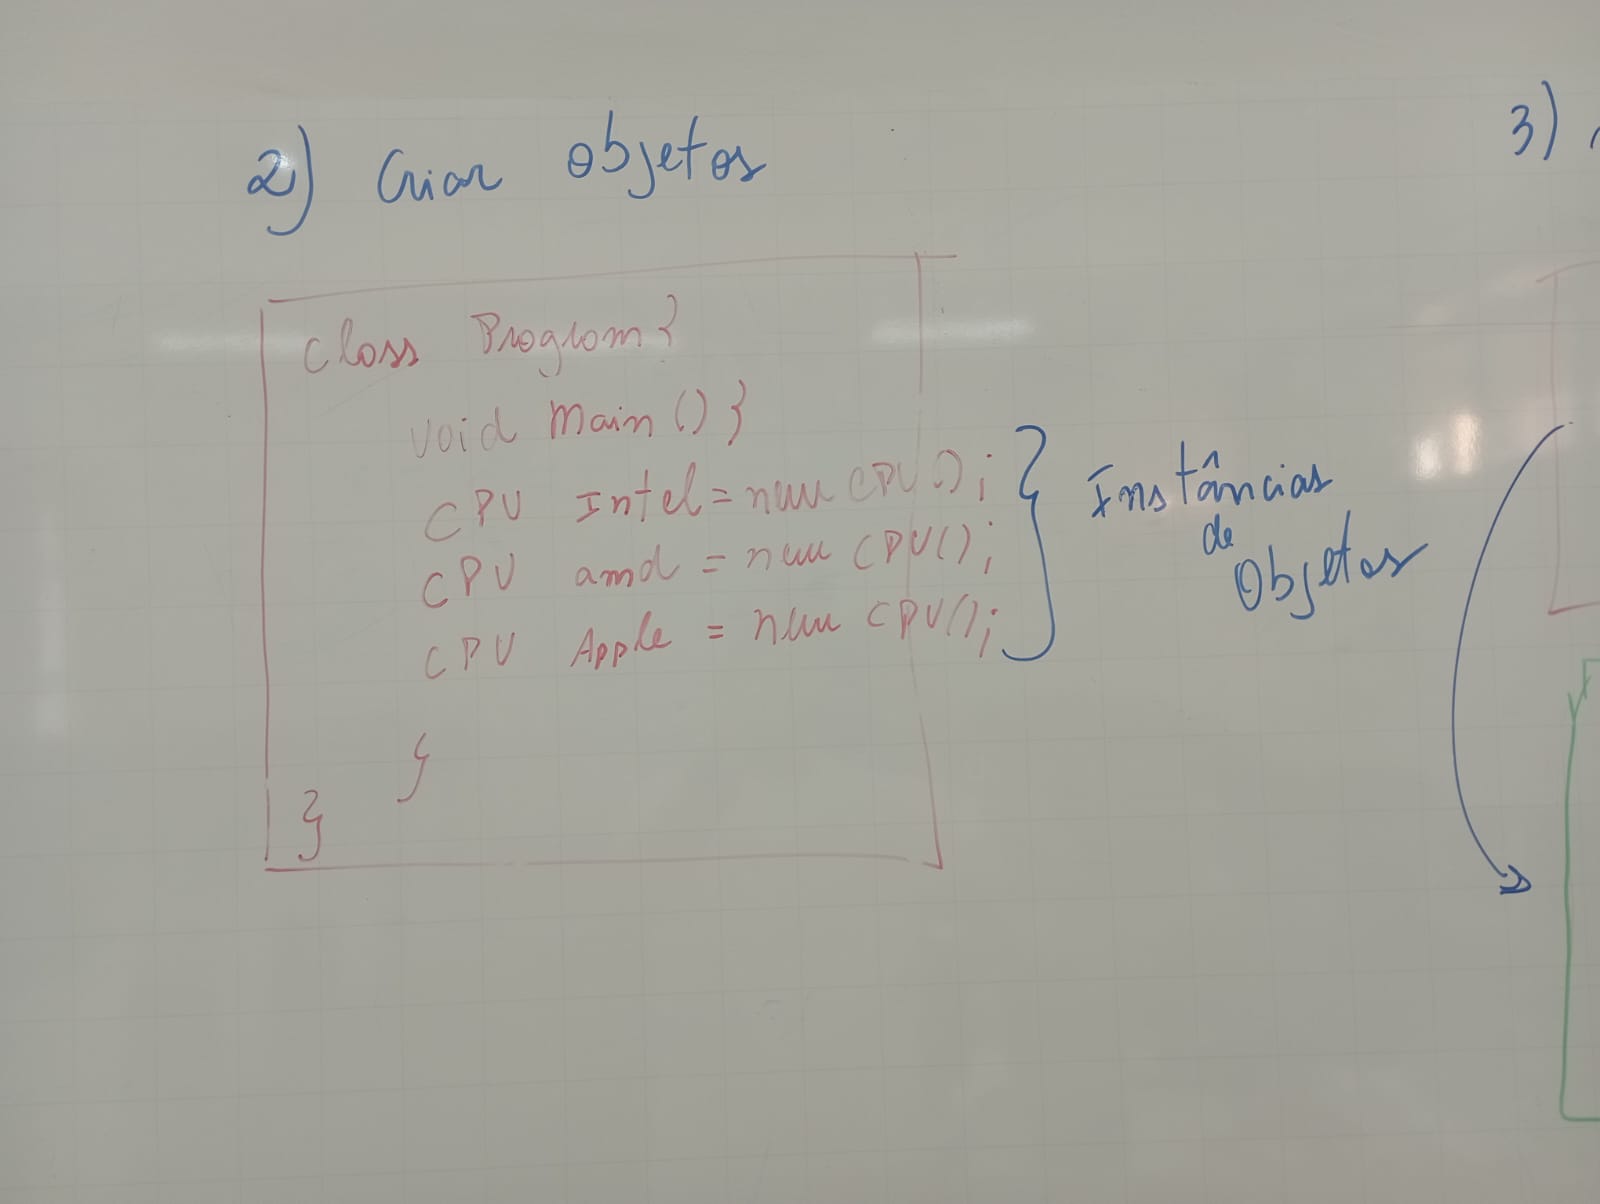 2) Criar Objetos
3)
class Program {
void Main () {
CPU Intel = new CPU();
CPU amd = new CPU();
CPU Apple = new CPU();
}
}
Instâncias
de
Objetos